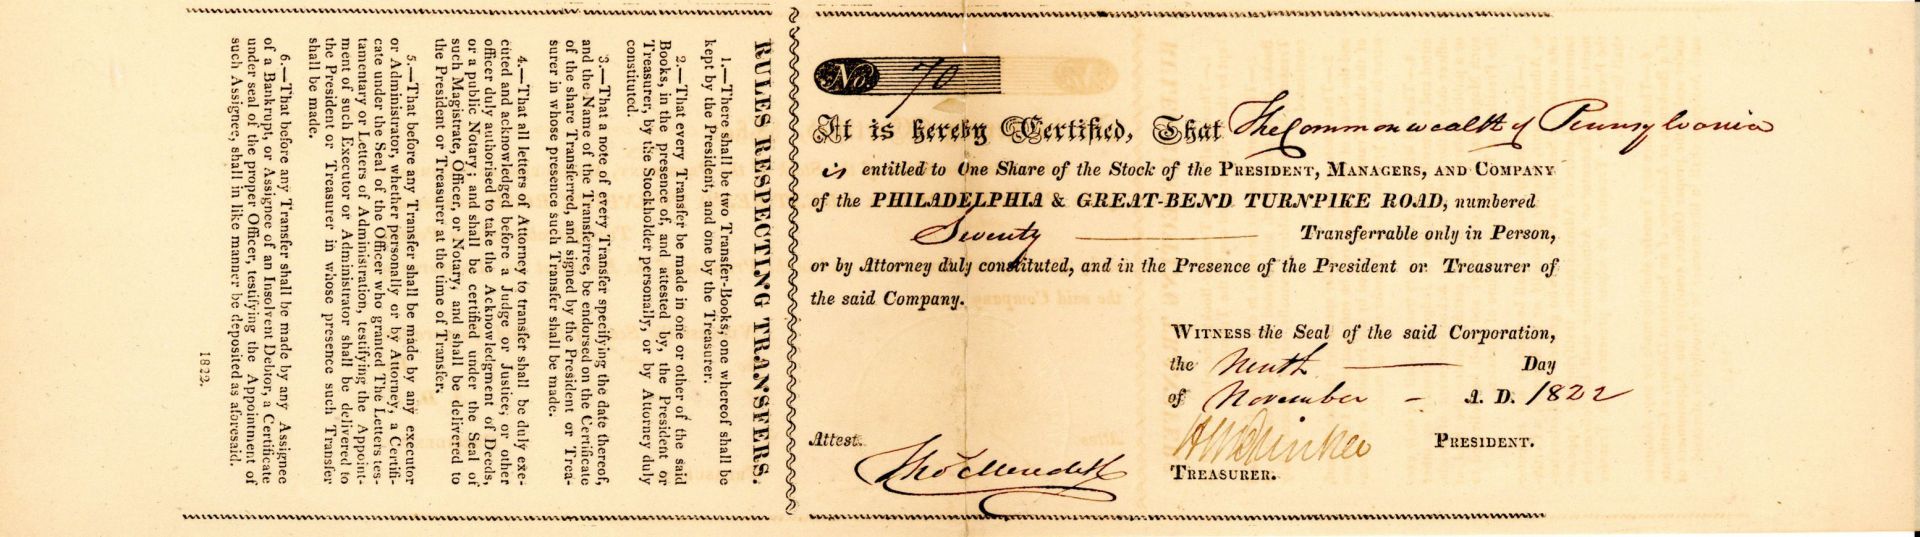 No. 70
It is hereby Certified, That The Commonwealth of Pennsylvania
is entitled to One Share of the Stock of the PRESIDENT, MANAGERS, AND COMPANY
of the PHILADELPHIA & GREAT-BEND TURNPIKE ROAD, numbered
Seventy Transferrable only in Person,
or by Attorney duly constituted, and in the Presence of the President or Treasurer of
the said Company.
WITNESS the Seal of the said Corporation,
the Ninth Day
of November A. D. 1822
PRESIDENT.
Attest.
Thos Meredith
TREASURER.
RULES RESPECTING TRANSFERS.
1.—There shall be two Transfer-Books, one whereof shall be
kept by the President, and one by the Treasurer.
2.—That every Transfer be made in one or other of the said
Books, in the presence of, and attested by, the President or
Treasurer, by the Stockholder personally, or by Attorney duly
constituted.
3.—That a note of every Transfer specifying the date thereof,
and the Name of the Transferree, be endorsed on the Certificate
of the share Transferred, and signed by the President or Trea-
surer in whose presence such Transfer shall be made.
4.—That all letters of Attorney to transfer shall be duly exe-
cuted and acknowledged before a Judge or Justice, or other
officer duly authorised to take the Acknowledgment of Deeds,
or a public Notary; and shall be certified under the Seal of
such Magistrate, Officer, or Notary, and shall be delivered to
the President or Treasurer at the time of Transfer.
5.—That before any Transfer shall be made by any executor
or Administrator, whether personally or by Attorney, a Certifi-
cate under the Seal of the Officer who granted The Letters tes-
tamentary or Letters of Administration, testifying the Appoint-
ment of such Executor or Administrator shall be delivered to
the President or Treasurer in whose presence such Transfer
shall be made.
6.—That before any Transfer shall be made by any Assignee
of a Bankrupt, or Assignee of an Insolvent Debtor, a Certificate
under seal of the proper Officer, testifying the Appointment of
such Assignee, shall in like manner be deposited as aforesaid.
1822.